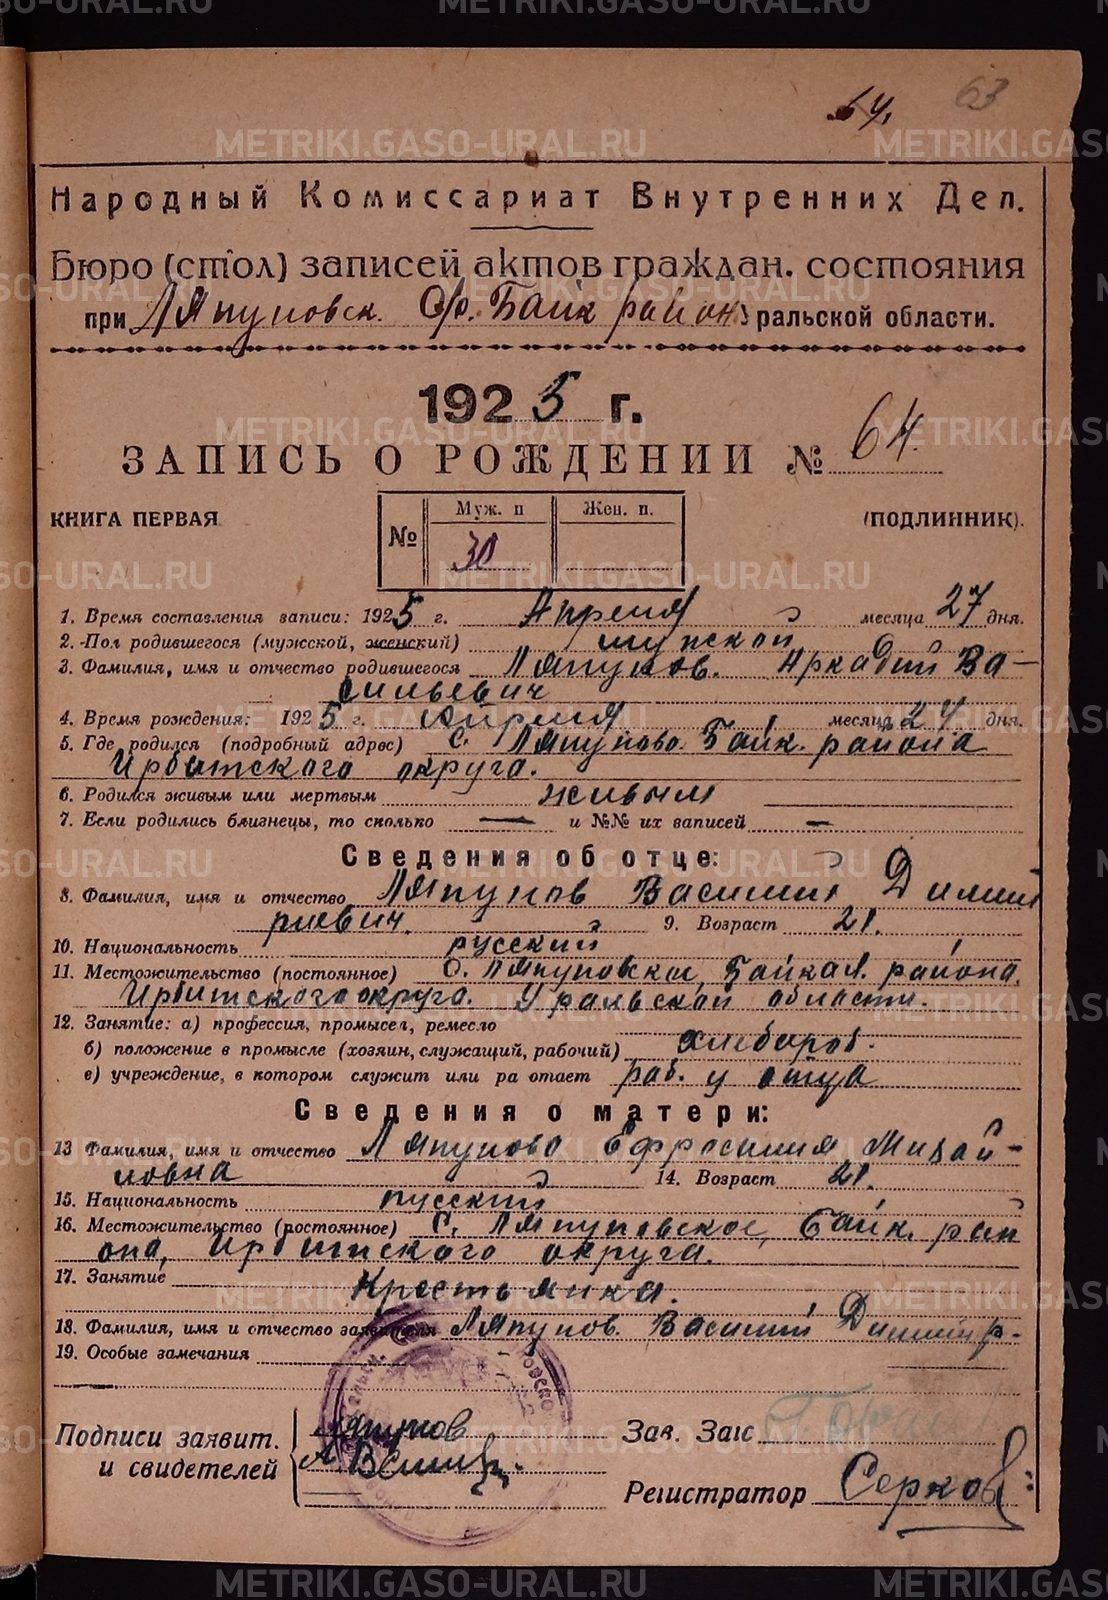 64.
63
Народный Комиссариат Внутренних Дел.
Бюро (стол) записей актов граждан. состояния
при Ляпуновск. С/с. Байк район Уральской области.
1925 г.
ЗАПИСЬ О РОЖДЕНИИ № 64.
КНИГА ПЕРВАЯ
№ Муж. п Жен. п.
30
(ПОДЛИННИК).
1. Время составления записи: 1925 г. Апреля месяца 27 дня.
2. Пол родившегося (мужской, женский) мужской
3. Фамилия, имя и отчество родившегося Ляпунов. Аркадий Ва-
сильевич
4. Время рождения: 1925 г. Апреля месяца 24 дня.
5. Где родился (подробный адрес) С. Ляпуново. Байк. района
Ирбитского округа.
6. Родился живым или мертвым живым
7. Если родились близнецы, то сколько — и №№ их записей —
Сведения об отце:
8. Фамилия, имя и отчество Ляпунов Василий Димит
риевич. 9. Возраст 21.
10. Национальность русский
11. Местожительство (постоянное) С. Ляпуновское, Байкал. района.
Ирбитского округа. Уральской области.
12. Занятие: а) профессия, промысел, ремесло
б) положение в промысле (хозяин, служащий, рабочий) хлебороб.
в) учреждение, в котором служит или ра отает раб. у отца
Сведения о матери:
13 Фамилия, имя и отчество Ляпунова Ефросиния Михай-
ловна 14. Возраст 21.
15. Национальность русский
16. Местожительство (постоянное) С. Ляпуновское, Байк. рай
она, Ирбитского округа.
17. Занятие Крестьянка.
18. Фамилия, имя и отчество заявителя Ляпунов. Василий Димитр.
19. Особые замечания
Подписи заявит. Ляпунов
и свидетелей
Зав. Загс
Регистратор Серков
METRIKI.GASO-URAL.RU